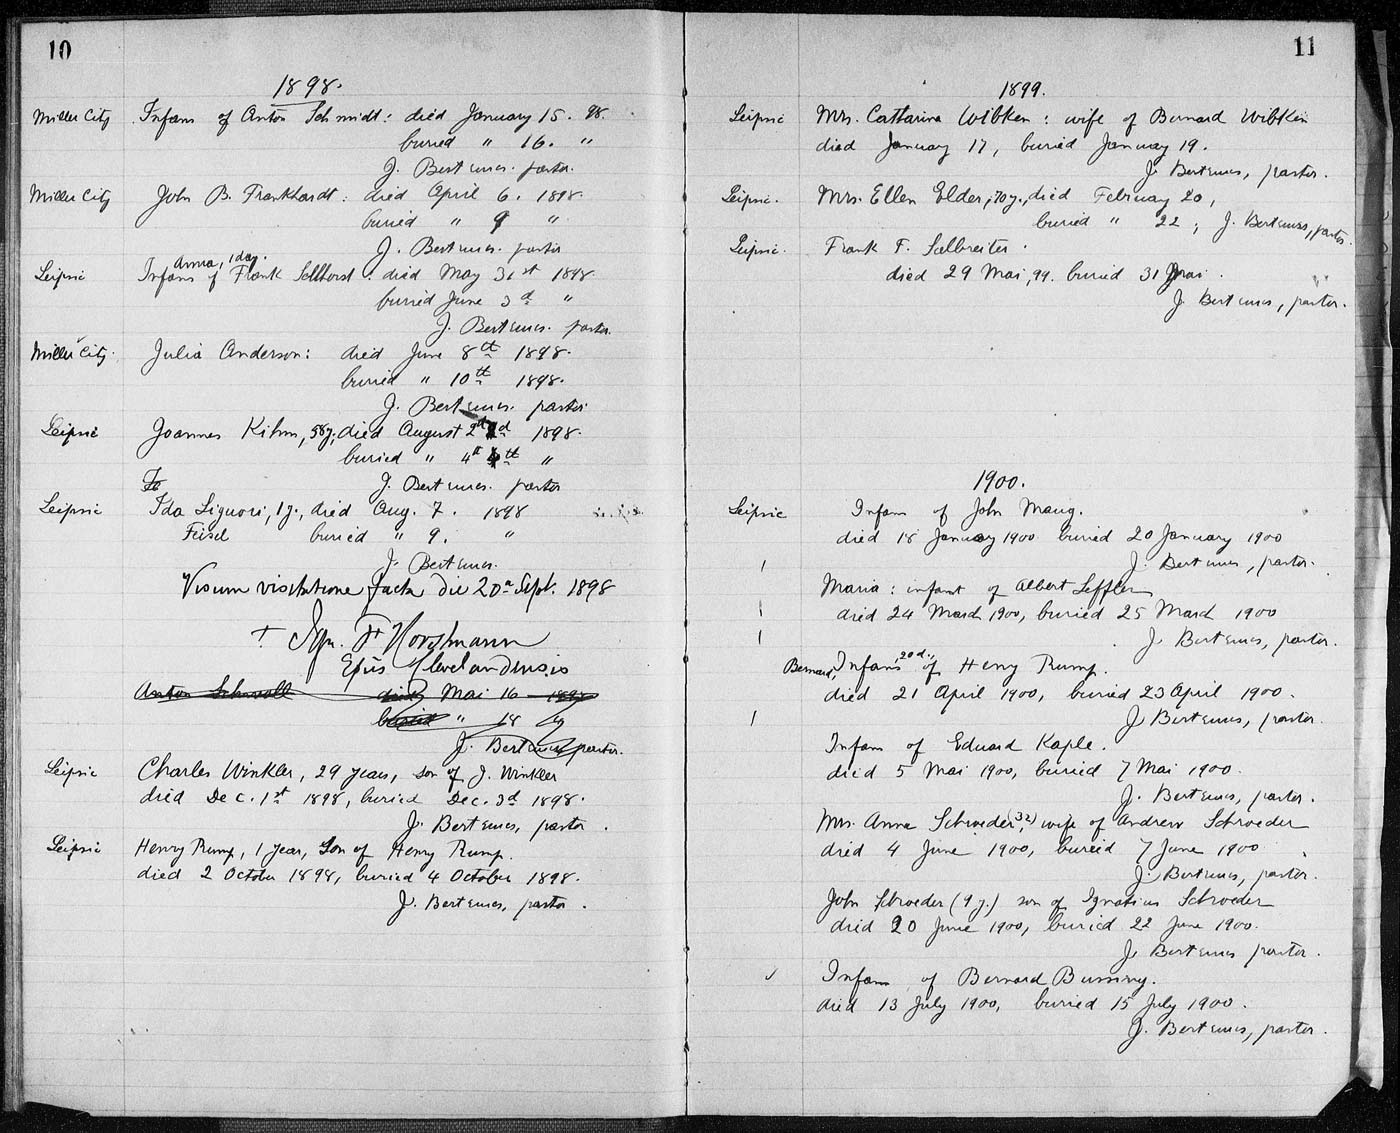 10
1898.
Miller City Infans of Anton Schmidt: died January 15. 98.
buried " 16. "
J. Bertemes. pastor.
Miller City John B. Frankhardt: died April 6. 1898
buried " 9 "
J. Bertemes. pastor
Anna, 1 day.
Leipsic Infans of Frank Sellhorst: died May 31st 1898
buried June 3d "
J. Bertemes. pastor.
Miller City. Julia Anderson: died June 8th 1898.
buried " 10th 1898.
J. Bertemes. pastor
Leipsic Joannes Kihm, 58y., died August 2d d 1898.
buried " 4th th "
J. Bertemes. pastor
Leipsic Ida Liguori, 1 y., died Aug. 7. 1898
Feisel buried " 9. "
J. Bertemes.
Visum visitatione facta die 20a Sept. 1898
+ Ign. F Horstmann
Epus Clevelandensis
Anton Schwall died Mai 16 1898
buried " 18 "
J. Bertemes pastor.
Leipsic Charles Winkler, 29 years, son of J. Winkler
died Dec. 1st 1898, buried Dec. 3d 1898.
J. Bertemes, pastor.
Leipsic Henry Rump, 1 year, Son of Henry Rump.
died 2 October 1898, buried 4 October 1898.
J. Bertemes, pastor.
11
1899.
Leipsic Mrs. Catharina Wibken: wife of Bernard Wibken
died January 17, buried January 19.
J. Bertemes, pastor.
Leipsic. Mrs. Ellen Elder, 70y., died February 20,
buried " 22, J. Bertemes, pastor.
Leipsic. Frank F. Salbreiter.
died 29 Mai, 99. buried 31 Mai.
J. Bertemes, pastor.
1900.
Leipsic Infans of John Maug.
died 18 January 1900 buried 20 January 1900
J. Bertemes, pastor.
Maria: infant of Albert Leffler
died 24 March 1900, buried 25 March 1900
J. Bertemes, pastor.
Bernard, Infans 20 d., of Henry Rump.
died 21 April 1900, buried 23 April 1900.
J. Bertemes, pastor.
Infans of Eduard Kaple.
died 5 Mai 1900, buried 7 Mai 1900.
J. Bertemes, pastor.
Mrs. Anna Schroeder (32), wife of Andrew Schroeder
died 4 June 1900, buried 7 June 1900
J. Bertemes, pastor.
John Schroeder (9 y.) son of Ignatius Schroeder
died 20 June 1900, buried 22 June 1900.
J. Bertemes pastor.
Infans of Bernard Bussing.
died 13 July 1900, buried 15 July 1900.
J. Bertemes, pastor.